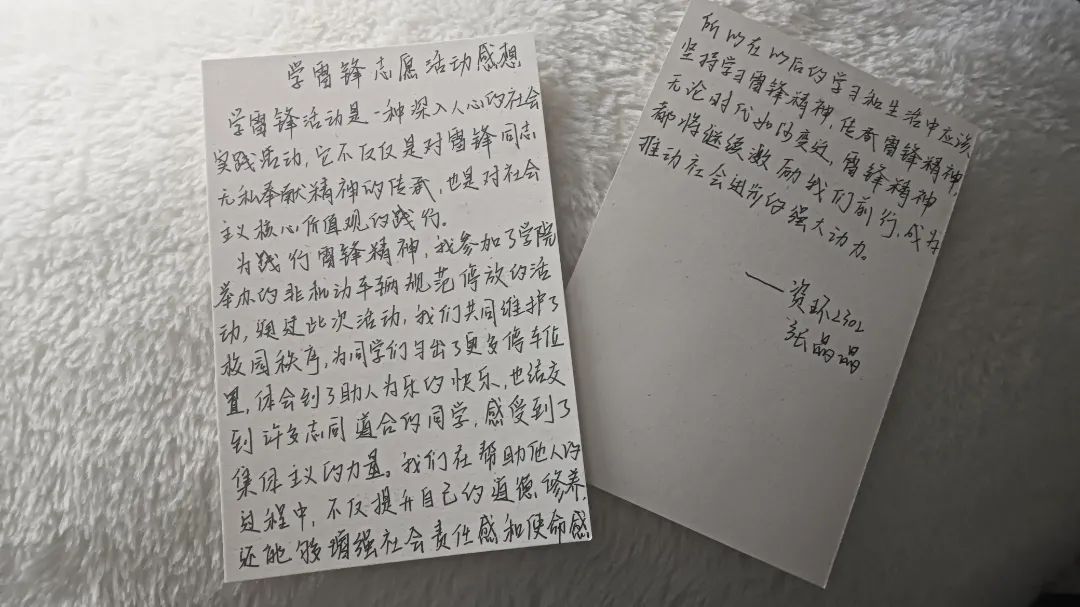 学雷锋志愿活动感想
学雷锋活动是一种深入人心的社会
实践活动,它不仅仅是对雷锋同志
无私奉献精神的传承,也是对社会
主义核心价值观的践行。
为践行雷锋精神,我参加了学院
举办的非机动车辆规范停放的活
动,通过此次活动,我们共同维护了
校园秩序,为同学们匀出了更多停车位
置,体会到了助人为乐的快乐,也结交
到许多志同道合的同学,感受到了
集体主义的力量。我们在帮助他人的
过程中,不仅提升自己的道德修养,
还能够增强社会责任感和使命感
所以在以后的学习和生活中应该
坚持学习雷锋精神,传承雷锋精神
无论时代如何变迁,雷锋精神
都将继续激励我们前行,成为
推动社会进步的强大动力。
——资环2302
张晶晶